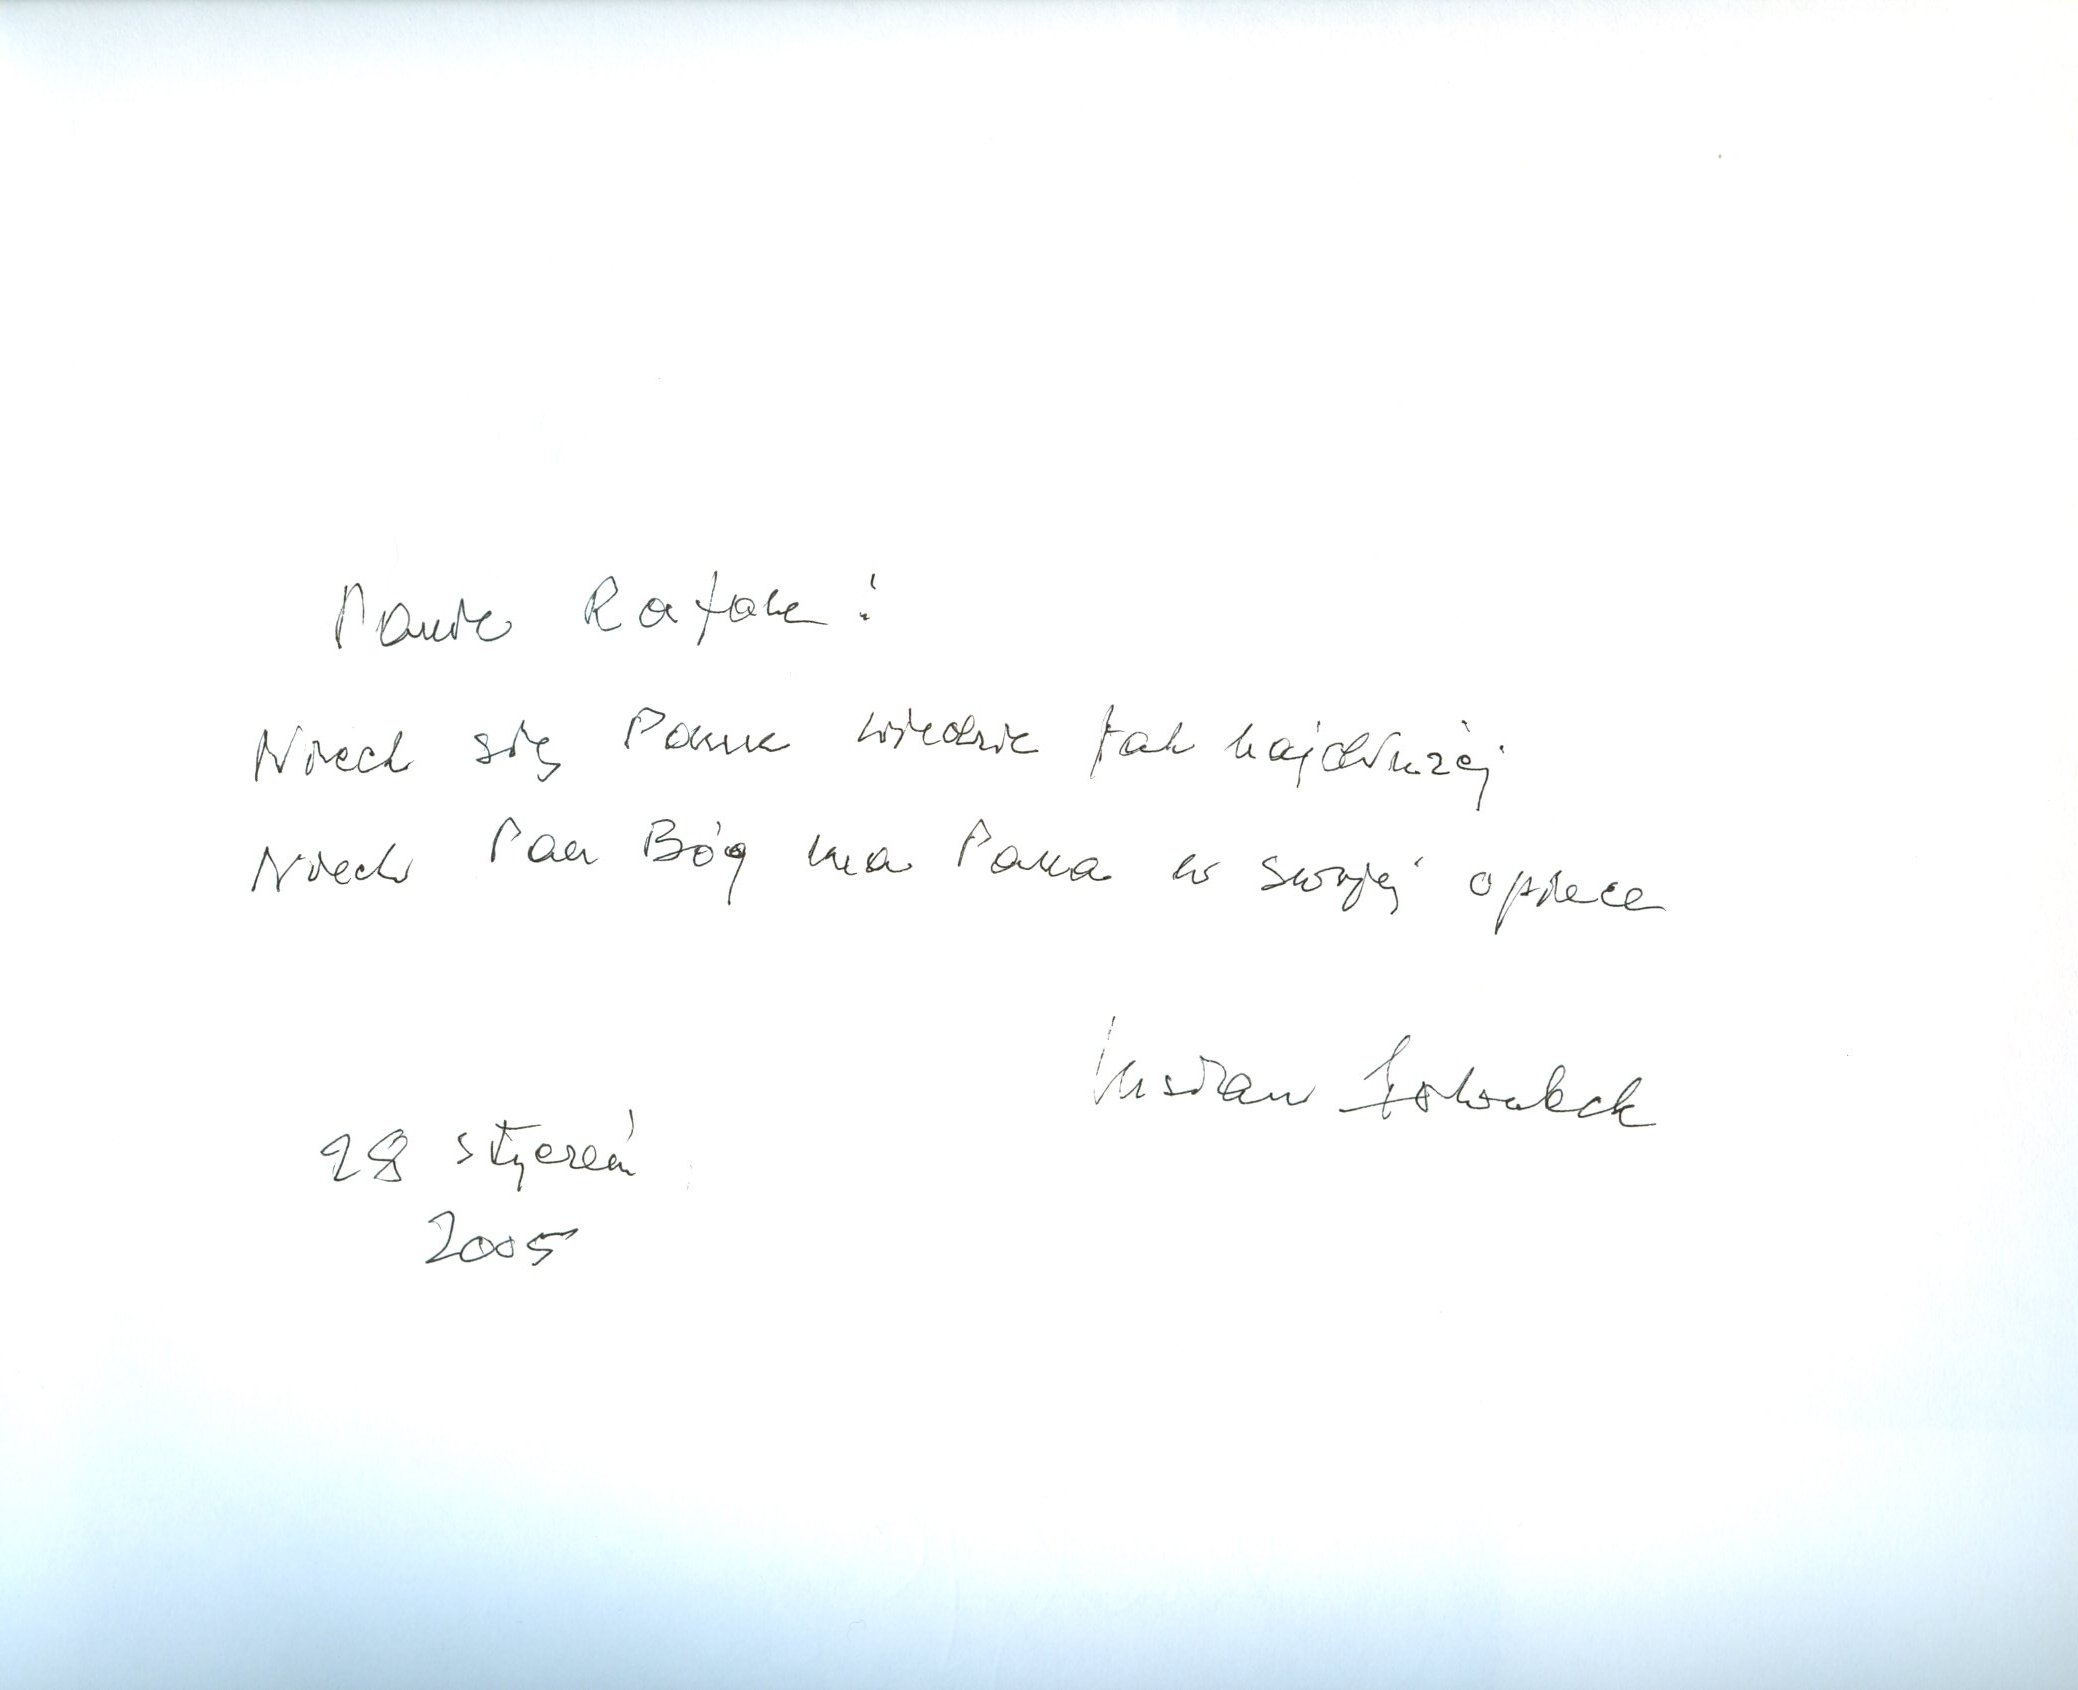 Panie Rafale!
Niech się Panu wiedzie jak najdłużej
Niech Pan Bóg ma Pana w swojej opiece
Gustaw Holoubek
28 styczeń
2005